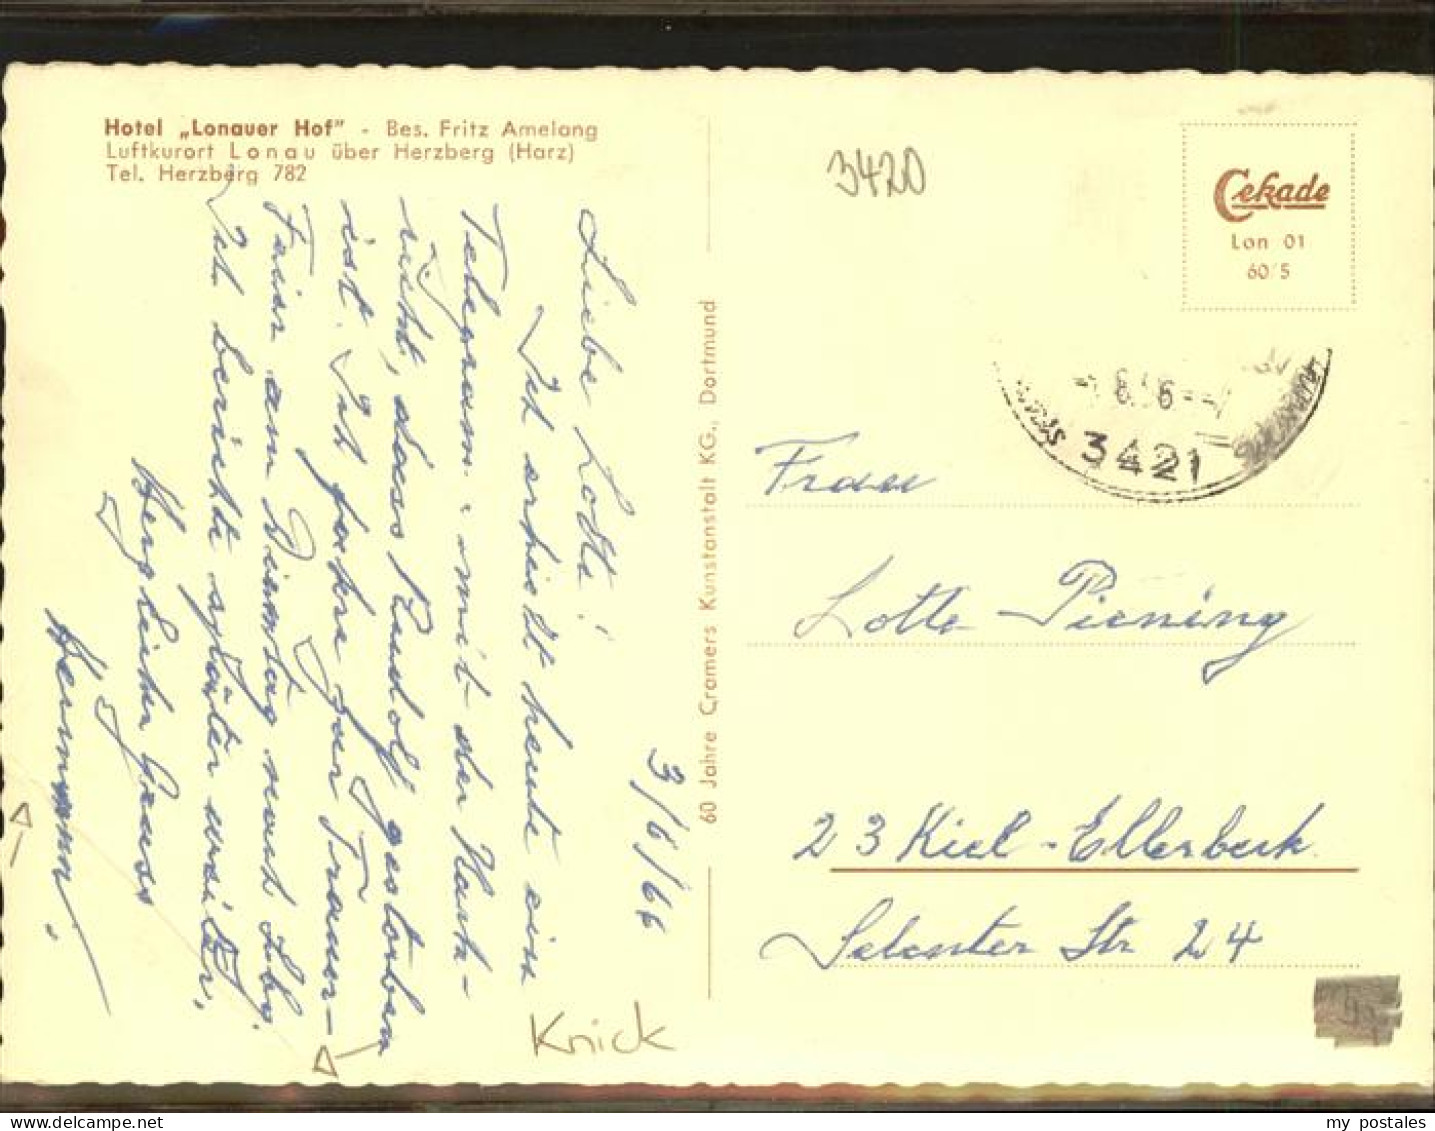 Hotel „Lonauer Hof" - Bes. Fritz Amelang
Luftkurort Lonau über Herzberg (Harz)
Tel. Herzberg 782
3/6/66
Liebe Lotte!
Ich erhielt heute ein
Telegramm mit der Nach-
richt, dass Rudolf gestorben
ist. Ich fahre zur Trauer-
Feier am Dienstag nach
Ich berichte später weiter.
Herzliche Grüsse
Hermann.
Knick
60 Jahre Cramers Kunstanstalt KG., Dortmund
3420
Cekade
Lon 01
60/5
3421
Frau
Lotte Piening
23 Kiel-Ellerbek
Selenter Str 24
my postales